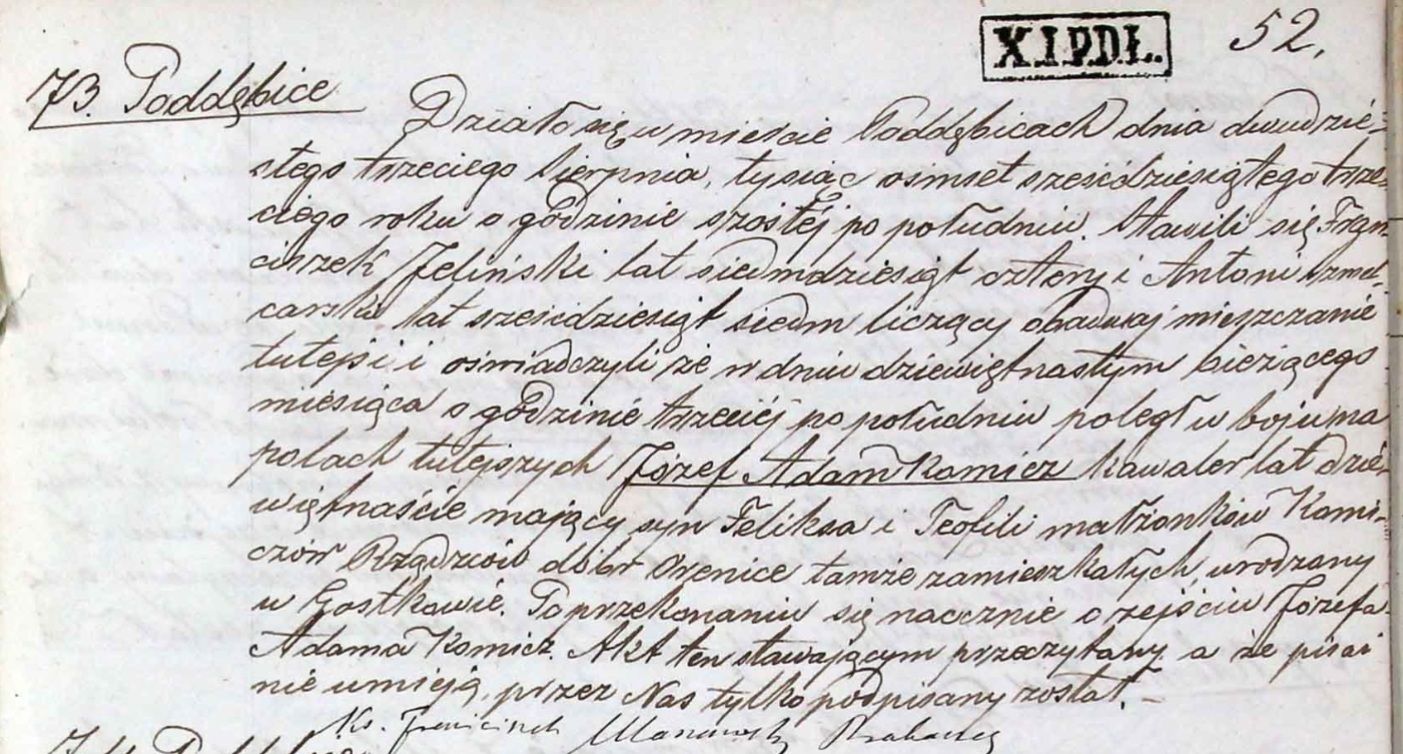 X.I.P.D.Ł. 52.
73. Poddębice
Działo się w mieście Poddębicach dnia dwudzie-
stego trzeciego Sierpnia, tysiąc ośmset sześćdziesiątego trze-
ciego roku o godzinie szóstéj po południu. Stawili się Fran-
ciszek Jeliński lat siedmdziesiąt cztery i Antoni
lat sześćdziesiąt siedm liczący obadwaj mieszczanie
tutejsi i oświadczyli że w dniu dziewiętnastym bieżącego
miesiąca o godzinie trzeciéj po południu poległ w boju na
polach tutejszych Józef Adam Komicz kawaler lat dzie-
więtnaście mający syn Feliksa i Teofili małżonków Komi-
czów Rządzców dóbr tamże zamieszkałych, urodzony
w Gostkowie. Po przekonaniu się naocznie o zejściu Józefa
Adama Komicz. Akt ten stawającym przeczytany a że pisać
nie umieją, przez Nas tylko podpisany został. –
Ks. Franciszek